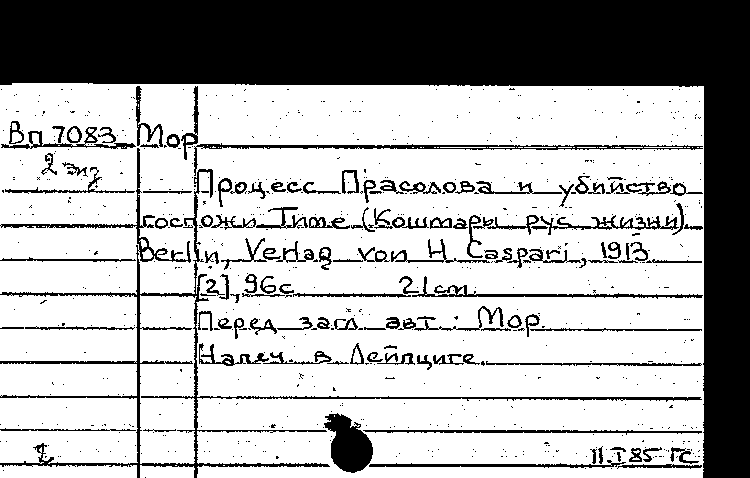 Вп 7083 Мор
2 экз
Процесс Прасолова и убийство
госпожи Тиме (Кошмары рус жизни)
Berlin, Verlag von H. Caspari, 1913
[2], 96с 21cm
Перед загл авт.: Мор
Напеч. в Лейпциге.
11.I 85 ГС